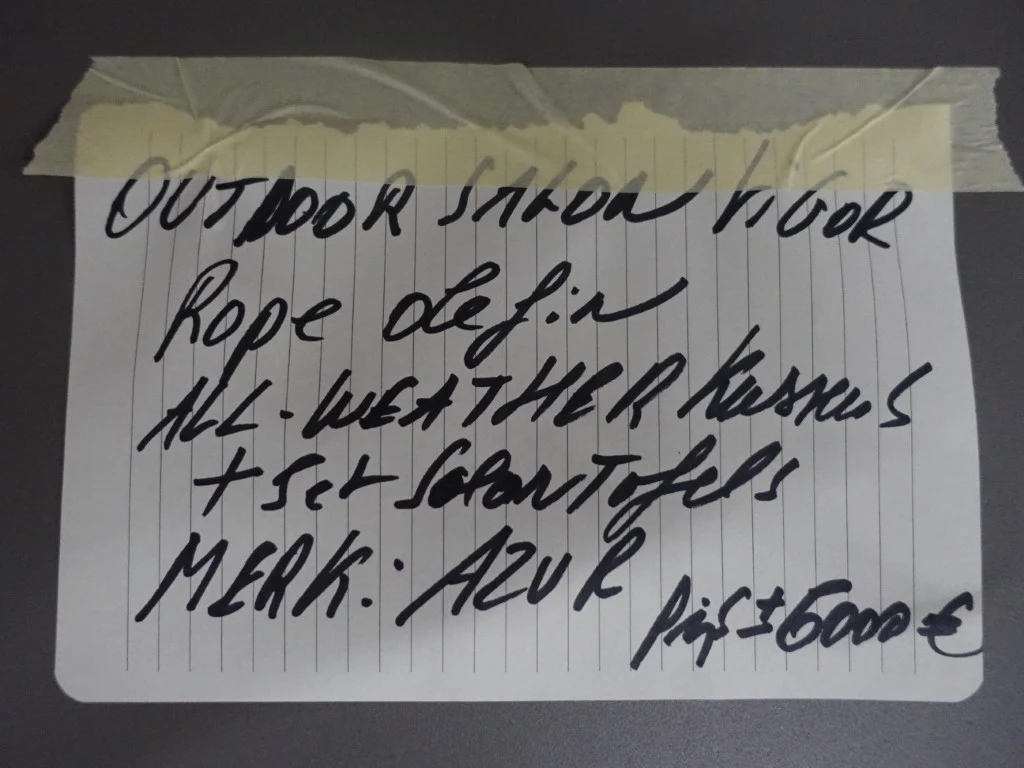 OUTDOOR SALON VIGOR
Rope olefin
ALL-WEATHER Kussens
+ Set Salontafels
MERK: AZUR
Prijs ± 6000 €